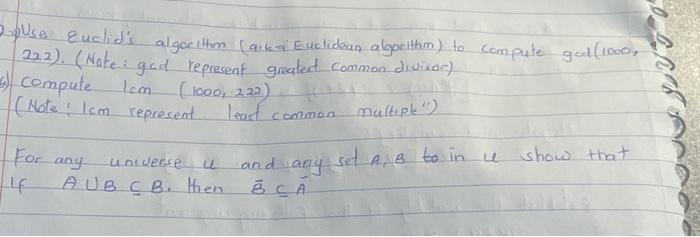 Use Euclid's algorithm (a.k.a Euclidean algorithm) to compute gcd(1000,
222). (Note: gcd represent greatest common divisor)
b) compute lcm (1000, 222)
(Note: lcm represent least common multiple")
For any universe u and any set A, B to in u show that
If A ∪ B ⊆ B. then B̄ ⊆ Ā